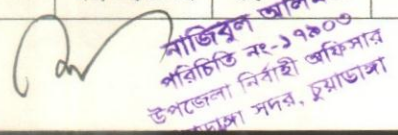 নাজিবুল আলম
পরিচিতি নং-১৭৯০৩
উপজেলা নির্বাহী অফিসার
সদর, চুয়াডাঙ্গা